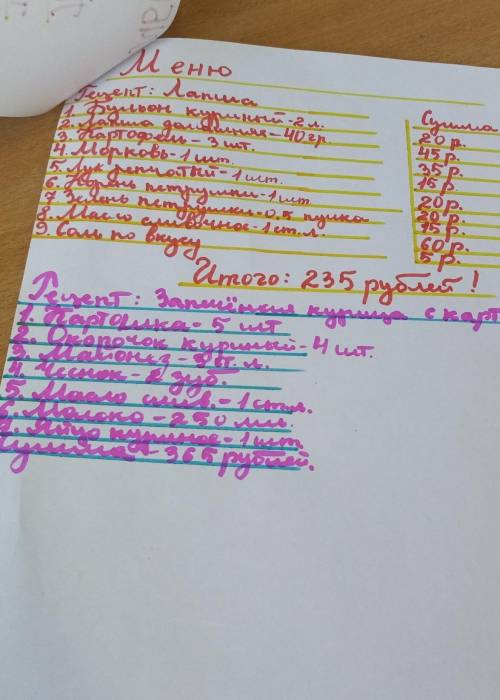 Меню
Рецепт: Лапша
1. Бульон куриный-2 л.
2. Лапша домашняя-40гр.
3. Картофель-3 шт.
4. Морковь-1 шт.
5. Лук репчатый-1 шт.
6. Корень петрушки-1 шт.
7. Зелень петрушки-0,5 пучка
8. Масло сливочное-1 ст.л.
9. Соль по вкусу
Сумма
20 р.
45 р.
35 р.
15 р.
20 р.
20 р.
15 р.
60 р.
5 р.
Итого: 235 рублей!
Рецепт: Запечёнкия курица с карт
1. Картошка-5 шт
2. Окорочок куриный-4 шт.
3. Майонез-3 ст. л.
4. Чеснок-2 зуб.
5. Масло слив.-1 ст.л.
6. Молоко-250 мл.
7. Яйцо куриное-1 шт.
Сумма-365 рублей.